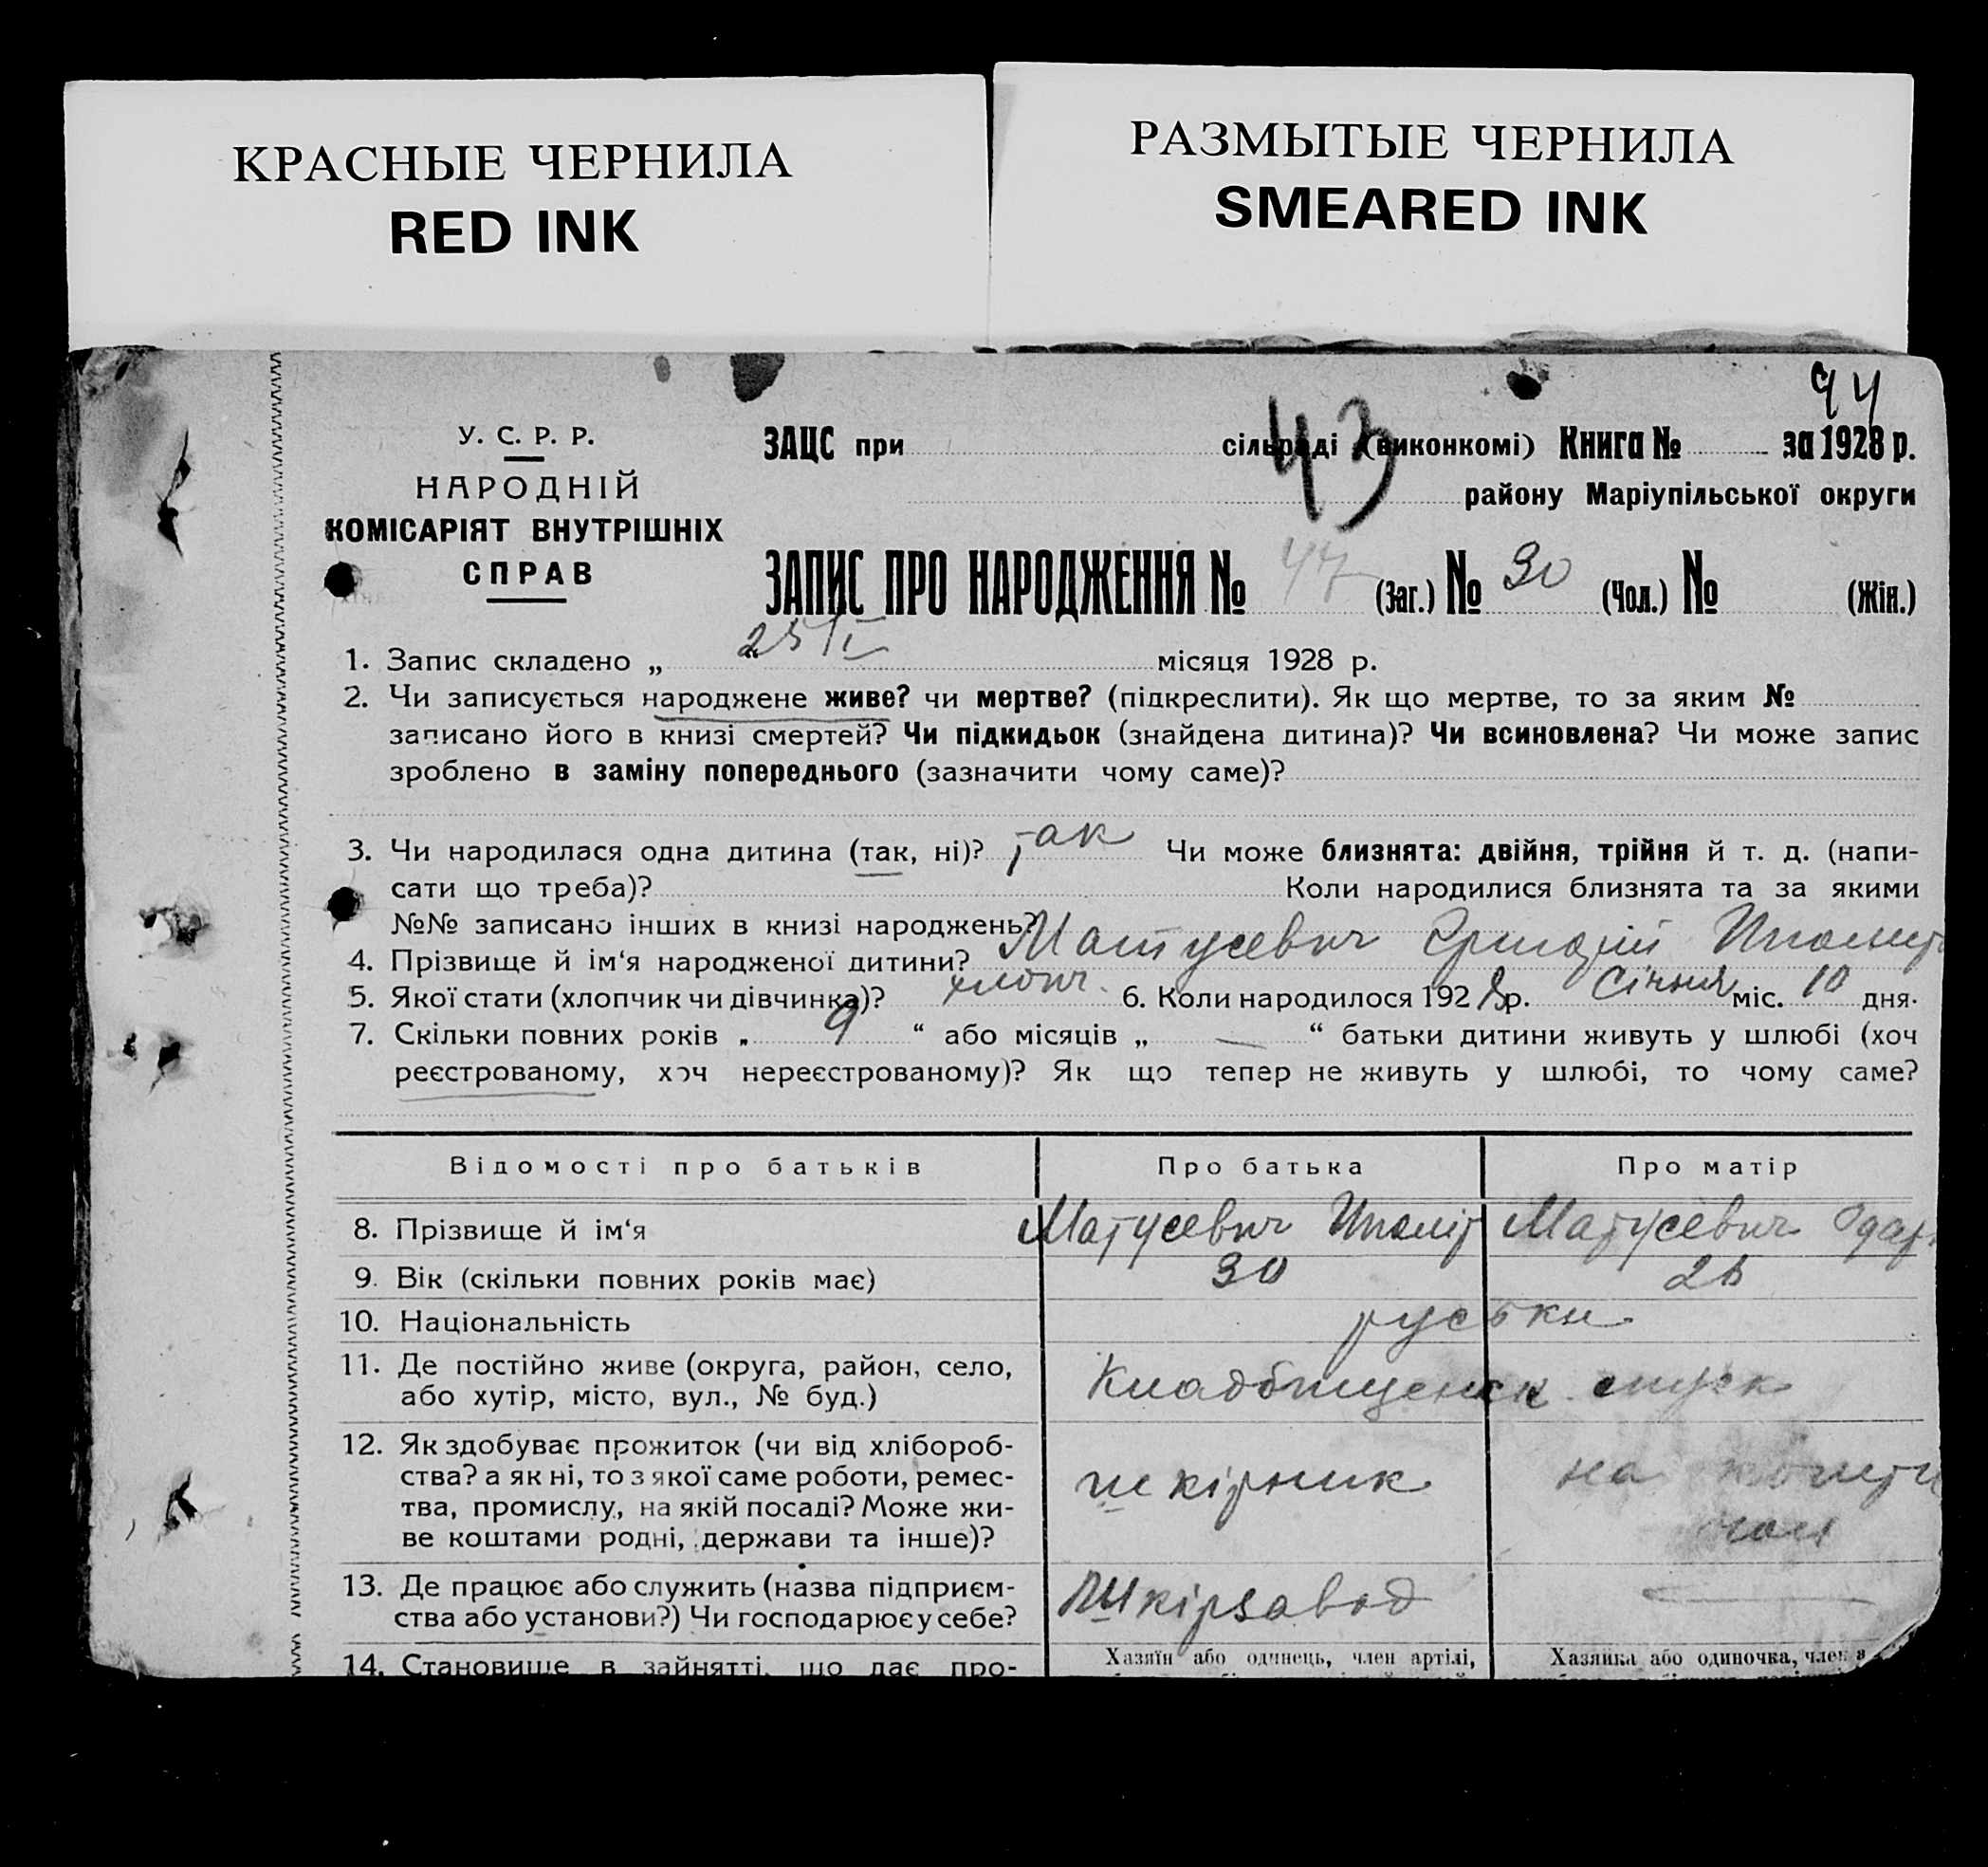 КРАСНЫЕ ЧЕРНИЛА
RED INK
РАЗМЫТЫЕ ЧЕРНИЛА
SMEARED INK
44
43
У. С. Р. Р.
НАРОДНІЙ
КОМІСАРІЯТ ВНУТРІШНІХ
СПРАВ
ЗАЦС при сільраді (виконкомі) Книга № за 1928 р.
району Маріупільської округи
ЗАПИС ПРО НАРОДЖЕННЯ № 47 (Заг.) № 30 (Чол.) № (Жін.)
1. Запис складено „ 25/I місяця 1928 р.
2. Чи записується народжене живе? чи мертве? (підкреслити). Як що мертве, то за яким №
записано його в книзі смертей? Чи підкидьок (знайдена дитина)? Чи всиновлена? Чи може запис
зроблено в заміну попереднього (зазначити чому саме)?
3. Чи народилася одна дитина (так, ні)? так Чи може близнята: двійня, трійня й т. д. (напи-
сати що треба)? Коли народилися близнята та за якими
№№ записано інших в книзі народжень?
4. Прізвище й ім‘я народженої дитини? Матусевич Григорій
5. Якої стати (хлопчик чи дівчинка)? хлопч. 6. Коли народилося 1928 р. Січня міс. 10 дня.
7. Скільки повних років „ 9 “ або місяців „ — “ батьки дитини живуть у шлюбі (хоч
реєстрованому, хоч нереєстрованому)? Як що тепер не живуть у шлюбі, то чому саме?
Відомості про батьків Про батька Про матір
8. Прізвище й ім‘я Матусевич Иполіт Матусевич Одар
9. Вік (скільки повних років має) 30 26
10. Національність руськи
11. Де постійно живе (округа, район, село,
або хутір, місто, вул., № буд.) Кладбищенск. спуск
12. Як здобуває прожиток (чи від хлібороб-
ства? а як ні, то з якої саме роботи, ремес-
тва, промислу, на якій посаді? Може жи-
ве коштами родні, держави та інше)? шкірник на
13. Де працює або служить (назва підприєм-
ства або установи?) Чи господарює у себе? Шкірзавод —
14. Становище в зайнятті, що дає про-
Хазяїн або одинець, член артілі,
Хазяйка або одиночка, член а